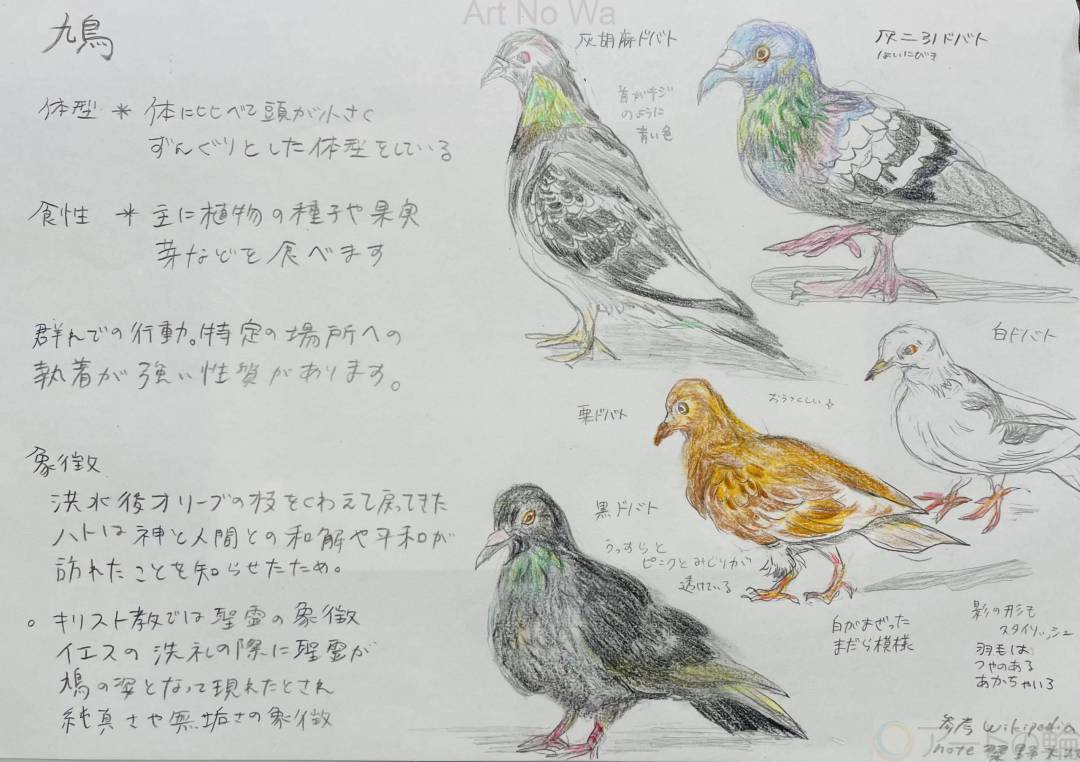 Art No Wa
鳩
体型 * 体に比べて頭が小さく
ずんぐりとした体型をしている
食性 * 主に植物の種子や果実
芽などを食べます
群れでの行動。特定の場所への
執着が強い性質があります。
象徴
洪水後オリーブの枝をくわえて戻ってきた
ハトは神と人間との和解や平和が
訪れたことを知らせたため。
。キリスト教では聖霊の象徴
イエスの洗礼の際に聖霊が
鳩の姿となって現れたとされ
純真さや無垢さの象徴
灰胡麻ドバト
首がキジ
のように
青い色
灰二引ドバト
はいにびき
白ドバト
栗ドバト
おうつくしい
黒ドバト
うっすらと
ピンクとみどりが
透けている
白がまざった
まだら模様
影の形も
スタイリッシュ
羽毛は
つやのある
あかちゃいろ
参考 Wikipedia
note